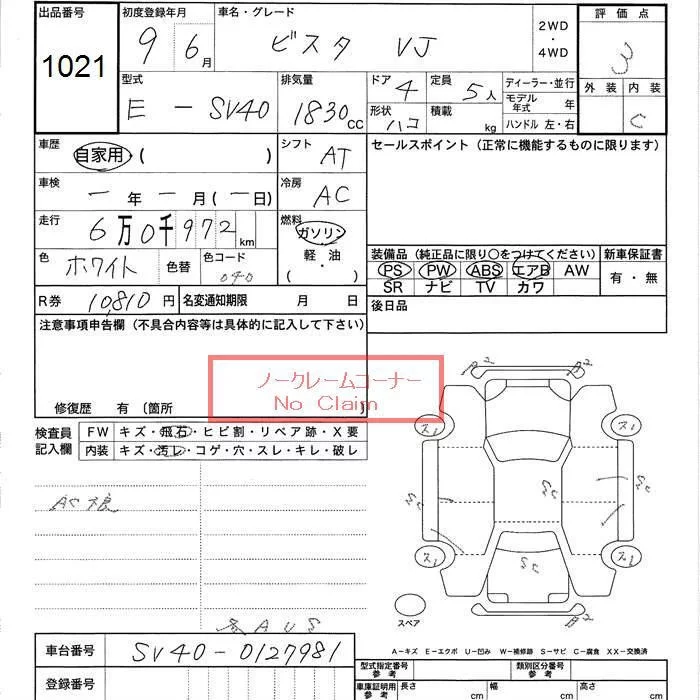 出品番号 初度登録年月 車名・グレード 2WD ・ 4WD 評価点
1021 9 6月 ビスタ VJ 3
型式 排気量 ドア 4 定員 5人 ディーラー・並行 外装 内装
E-SV40 1830cc 形状 ハコ 積載 kg モデル年式 年 C
ハンドル 左・右
車歴 自家用 ( ) シフト AT セールスポイント (正常に機能するものに限ります)
車検 一年 一月 (一日) 冷房 AC
走行 6万0千972km 燃料 ガソリン
軽・油
( ・ )
色 ホワイト 色替 色コード 040
装備品 (純正品に限り○をつけてください) 新車保証書
PS PW ABS エアB AW 有・無
SR ナビ TV カワ
R券 10,810円 名変通知期限 月 日 後日品
注意事項申告欄 (不具合内容等は具体的に記入して下さい)
ノークレームコーナー
No Claim
修復歴 有 〔箇所 〕
検査員記入欄 FW キズ・飛石・ヒビ割・リペア跡・X要
内装 キズ・汚レ・コゲ・穴・スレ・キレ・破レ
A2 A2
スレ スレ
SC SC SC
スレ スレ
SC
スペア
A2
AUS
A-キズ E-エクボ U-凹み W-補修跡 S-サビ C-腐食 XX-交換済
車台番号 SV40-0127981 型式指定番号 参考 類別区分番号 参考
登録番号 車庫証明用 参考 長さ cm 幅 cm 高さ cm